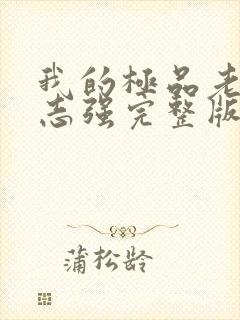 我的極品老
志强完整版
蒲松龄